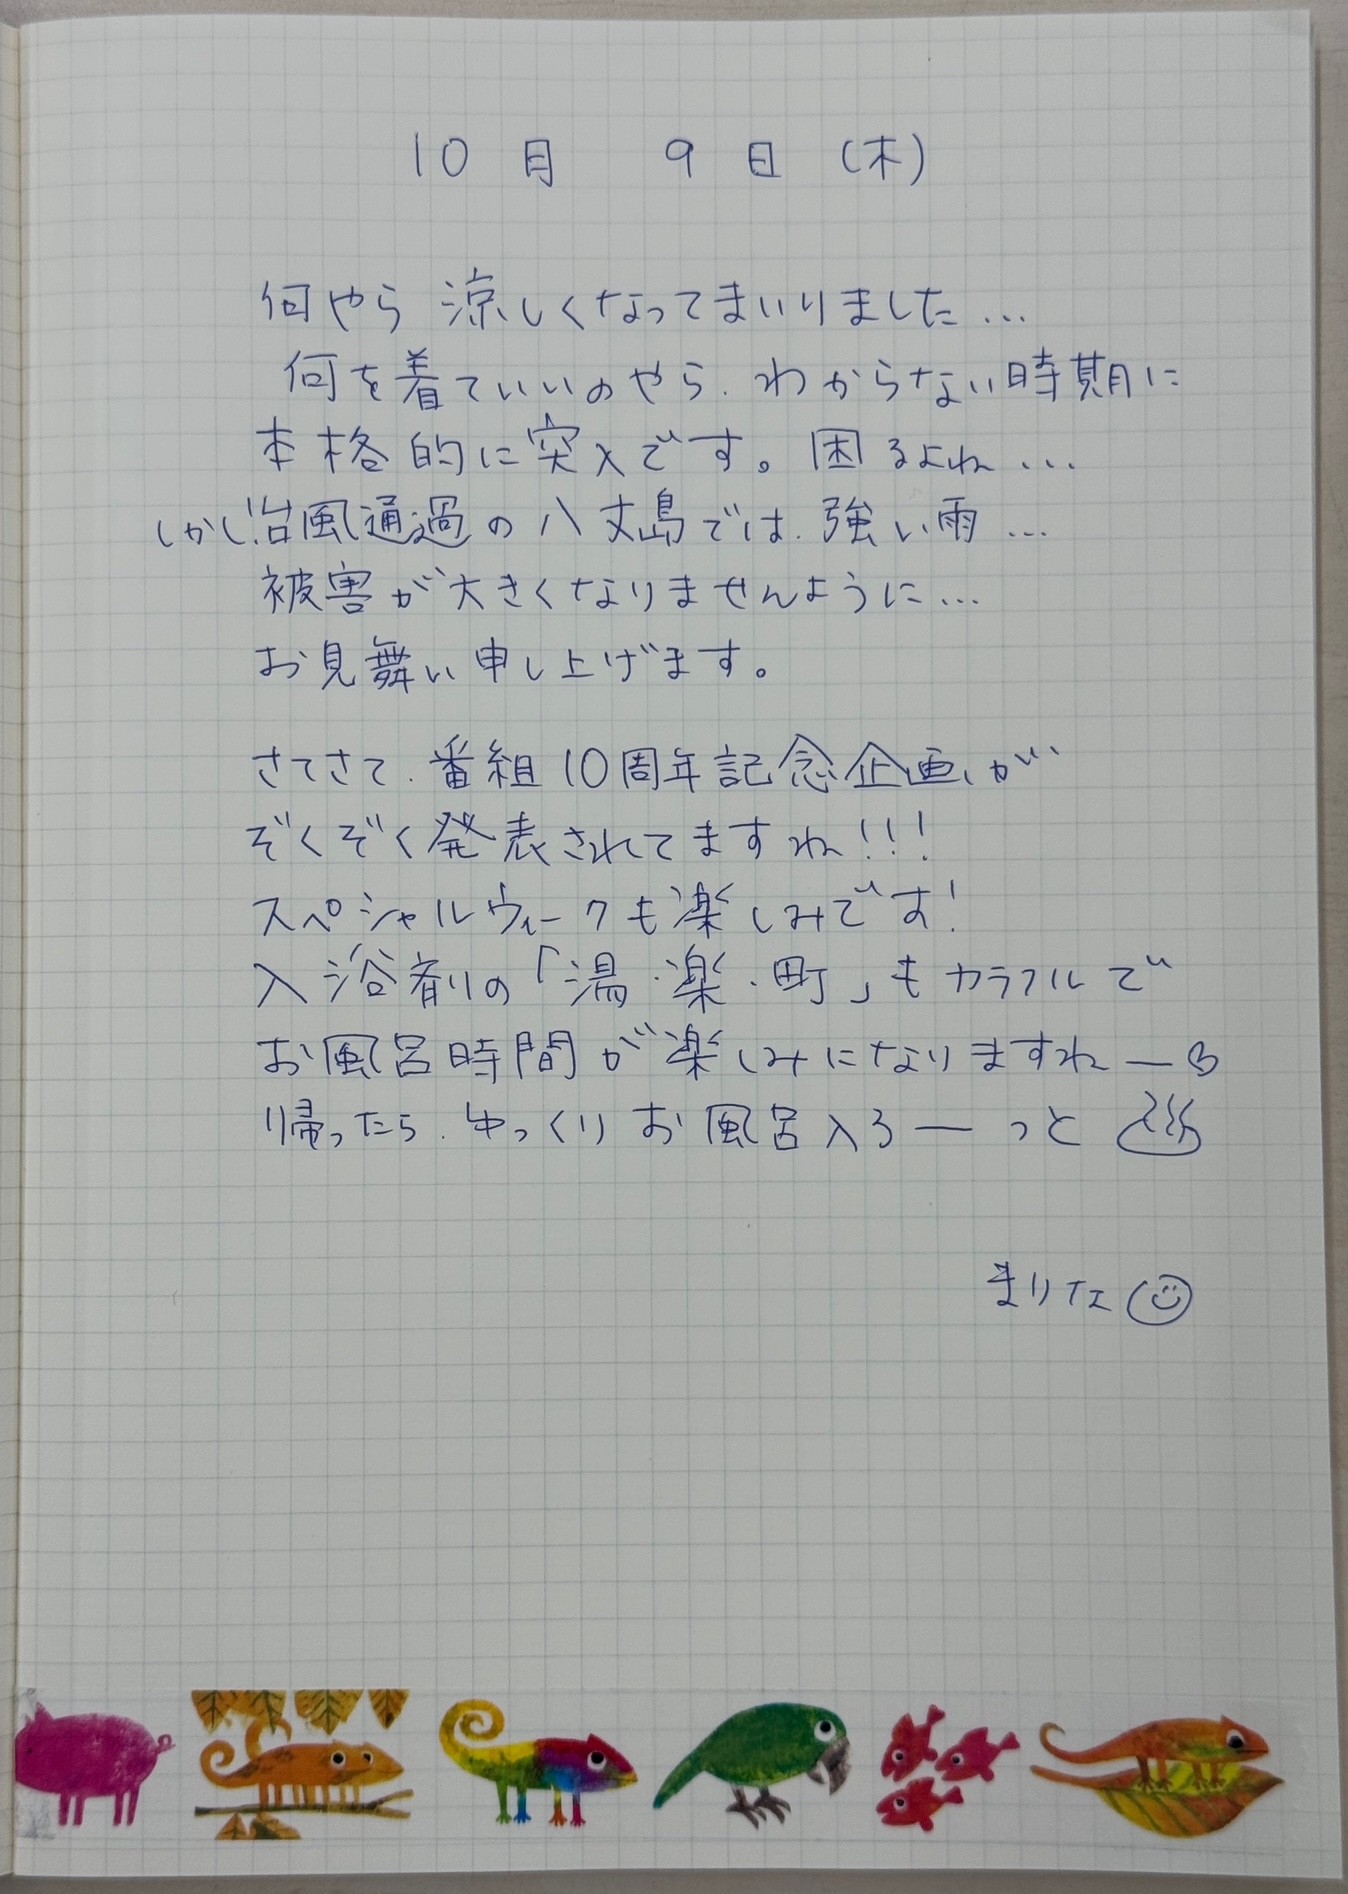 10月 9日 (木)
何やら 涼しくなってまいりました…
何を着ていいのやら、わからない時期に
本格的に突入です。困るよね…
しかし、台風通過の八丈島では、強い雨…
被害が大きくなりませんように…
お見舞い申し上げます。
さてさて、番組10周年記念企画が
ぞくぞく発表されてますね!!!
スペシャルウィークも楽しみです!
入浴剤の「湯・楽・町」もカラフルで
お風呂時間が楽しみになりますね―
帰ったら、ゆっくりお風呂入ろ―っと